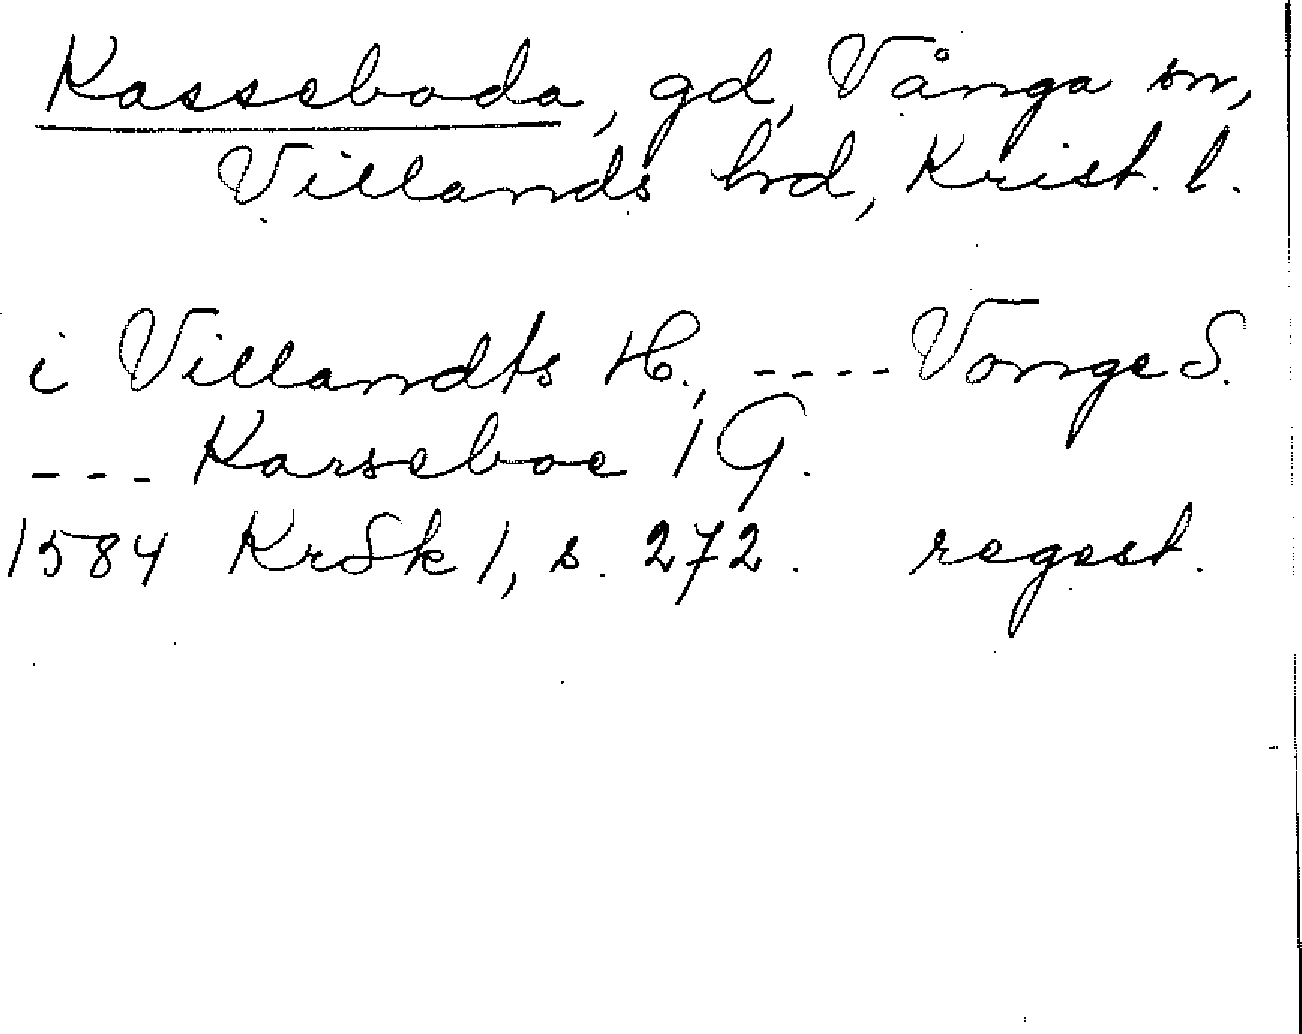 Kasseboda, gd, Vånga sn,
Villands hd, Krist. l.
i Villandts H., ---- Vonge S.
--- Karseboe 1 G.
1584 KrSk 1, s. 272. regest.